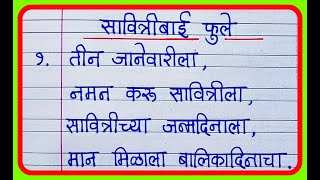 सावित्रीबाई फुले
१. तीन जानेवारीला,
नमन करू सावित्रीला,
सावित्रीच्या जन्मदिनाला,
मान मिळाला बालिकादिनाचा.